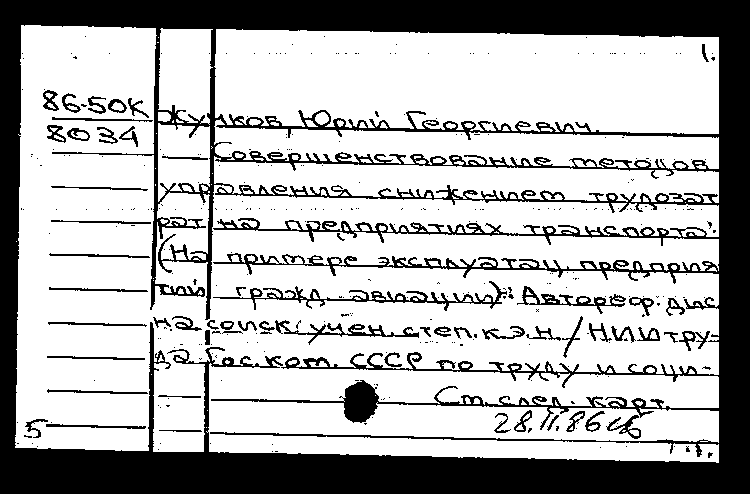 1.
86-50К Жучков, Юрий Георгиевич.
8034
Совершенствование методов
управления снижением трудозат
рат на предприятиях транспорта:
(На примере эксплуатац. предприя
тий гражд. авиации): Автореф. дис
на соиск. учен. степ. к.э.н. / НИИ тру-
да Гос. ком. СССР по труду и соци-
См. след. карт.
28.II.86
5